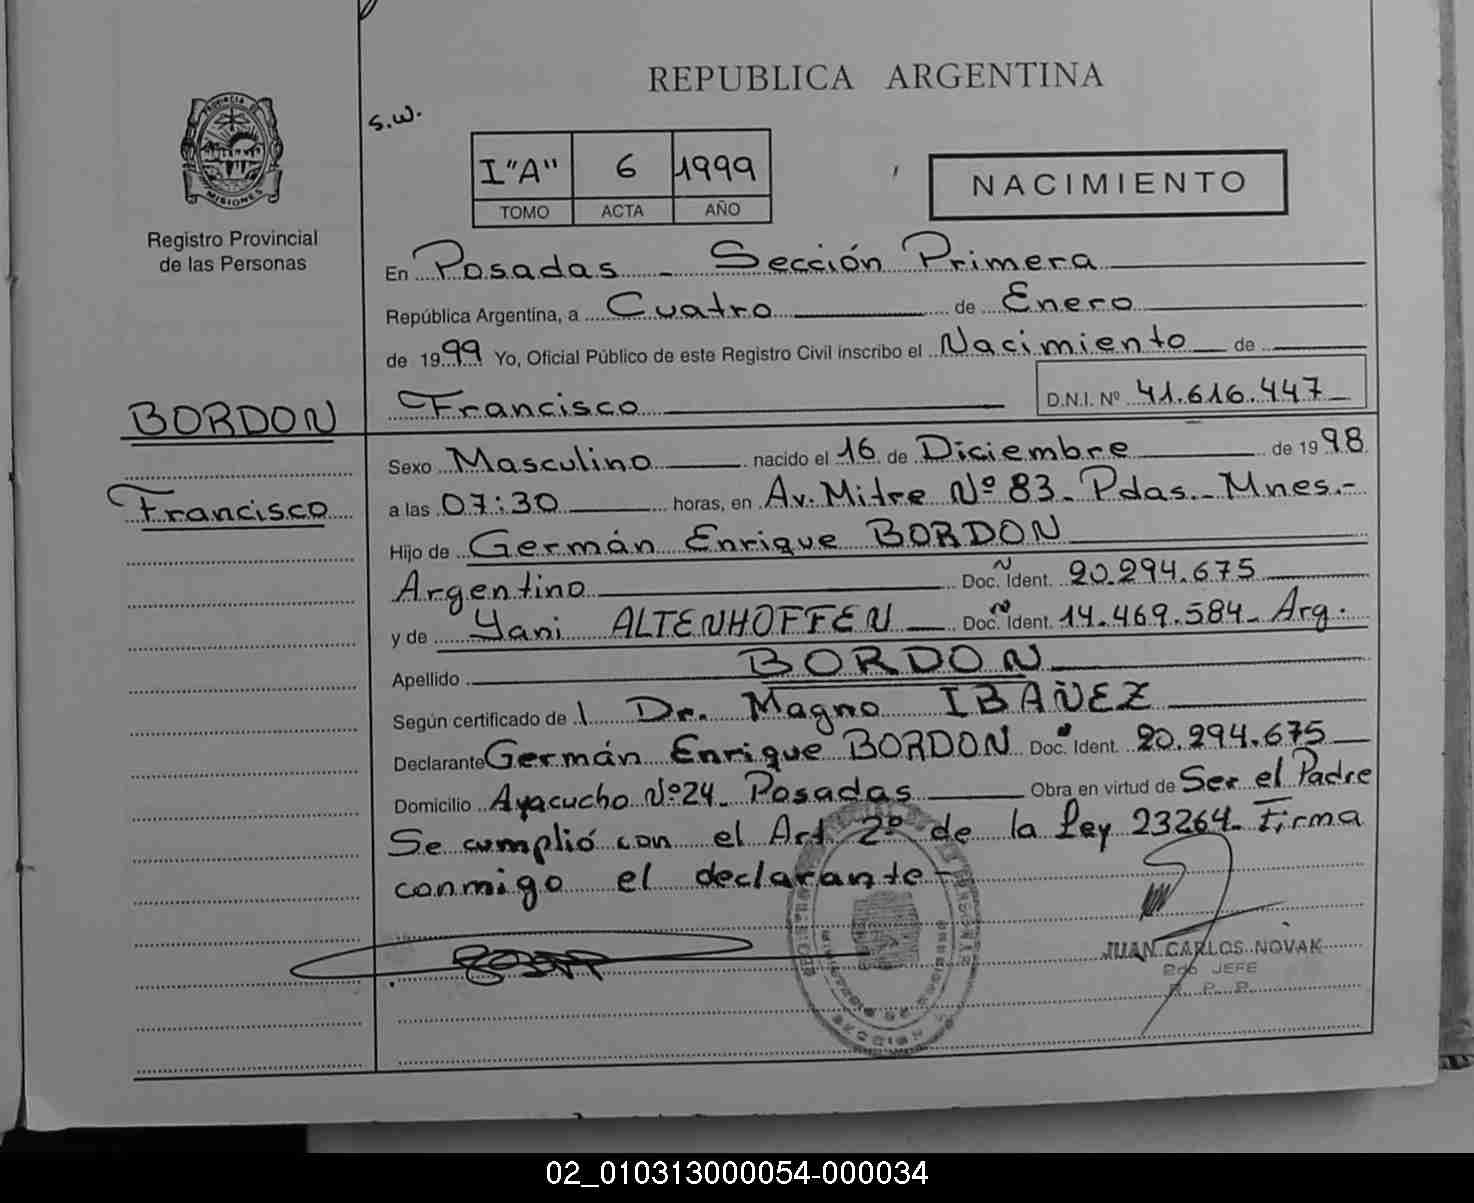 REPUBLICA ARGENTINA
PROVINCIA DE
MISIONES
Registro Provincial
de las Personas
s.w.
I "A" 6 1999
TOMO ACTA AÑO
NACIMIENTO
En Posadas - Sección Primera
República Argentina, a Cuatro de Enero
de 1999 Yo, Oficial Público de este Registro Civil inscribo el Nacimiento de
Francisco D.N.I. Nº 41.616.447
BORDON
Francisco
Sexo Masculino nacido el 16 de Diciembre de 1998
a las 07:30 horas, en Av. Mitre Nº 83 - Pdas. - Mnes.-
Hijo de Germán Enrique BORDON
Argentino Doc. Ident. 20.294.675
y de Yani ALTENHOFFEN Doc. Ident. 14.469.584 - Arg.
Apellido BORDON
Según certificado de l Dr. Magno IBAÑEZ
Declarante Germán Enrique BORDON Doc. Ident. 20.294.675
Domicilio Ayacucho Nº 24 - Posadas Obra en virtud de Ser el Padre
Se cumplió con el Art 2º de la Ley 23264 - Firma
conmigo el declarante -
JUAN CARLOS NOVAK
2do JEFE
R. P. P.
02_010313000054-000034